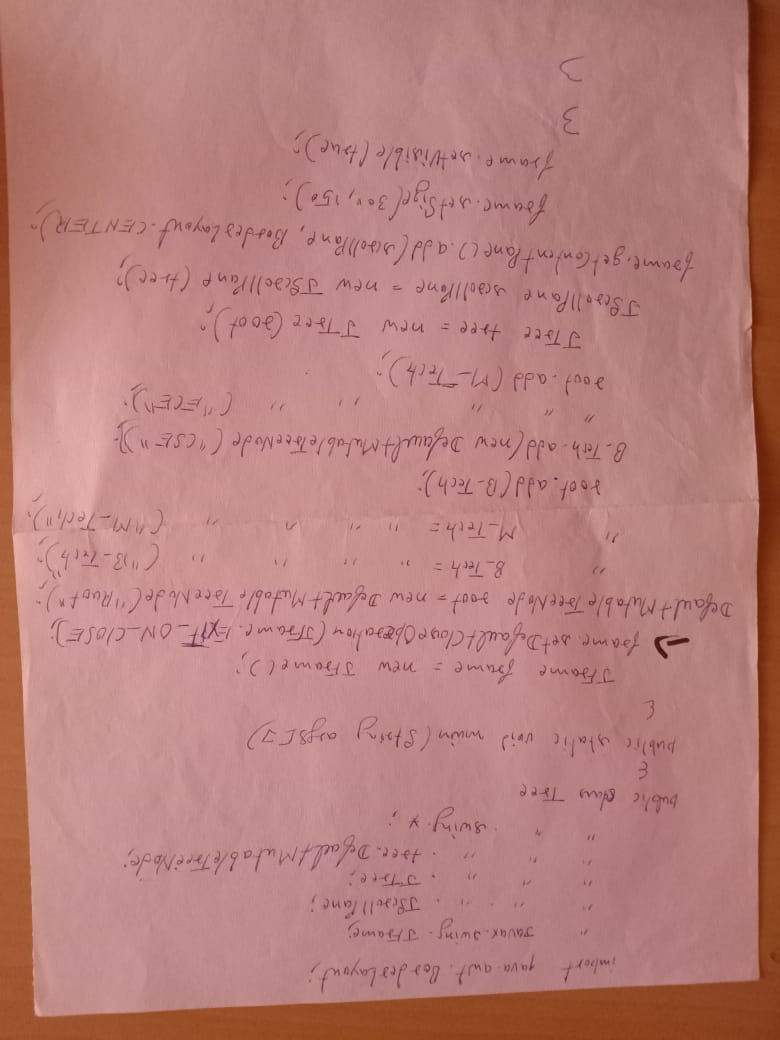 import java.awt.BorderLayout;
" javax.swing.JFrame;
" " . " . JScrollPane;
" " " . JTree;
" " " . tree.DefaultMutableTreeNode;
" " swing.*;
public class Tree
{
public static void main(String args[])
{
JFrame frame = new JFrame();
→ frame.setDefaultCloseOperation(JFrame.EXIT_ON_CLOSE);
DefaultMutableTreeNode root = new DefaultMutableTreeNode("Root");
" B_Tech = " " " " ("B-Tech");
" M_Tech = " " " " ("M_Tech");
root.add(B-Tech);
B-Tech.add(new DefaultMutableTreeNode("CSE"));
" " " " " ("ECE");
root.add(M_Tech);
JTree tree = new JTree(root);
JScrollPane scrollPane = new JScrollPane(tree);
frame.getContentPane().add(scrollPane, BorderLayout.CENTER);
frame.setSize(300, 150);
frame.setVisible(true);
}
}